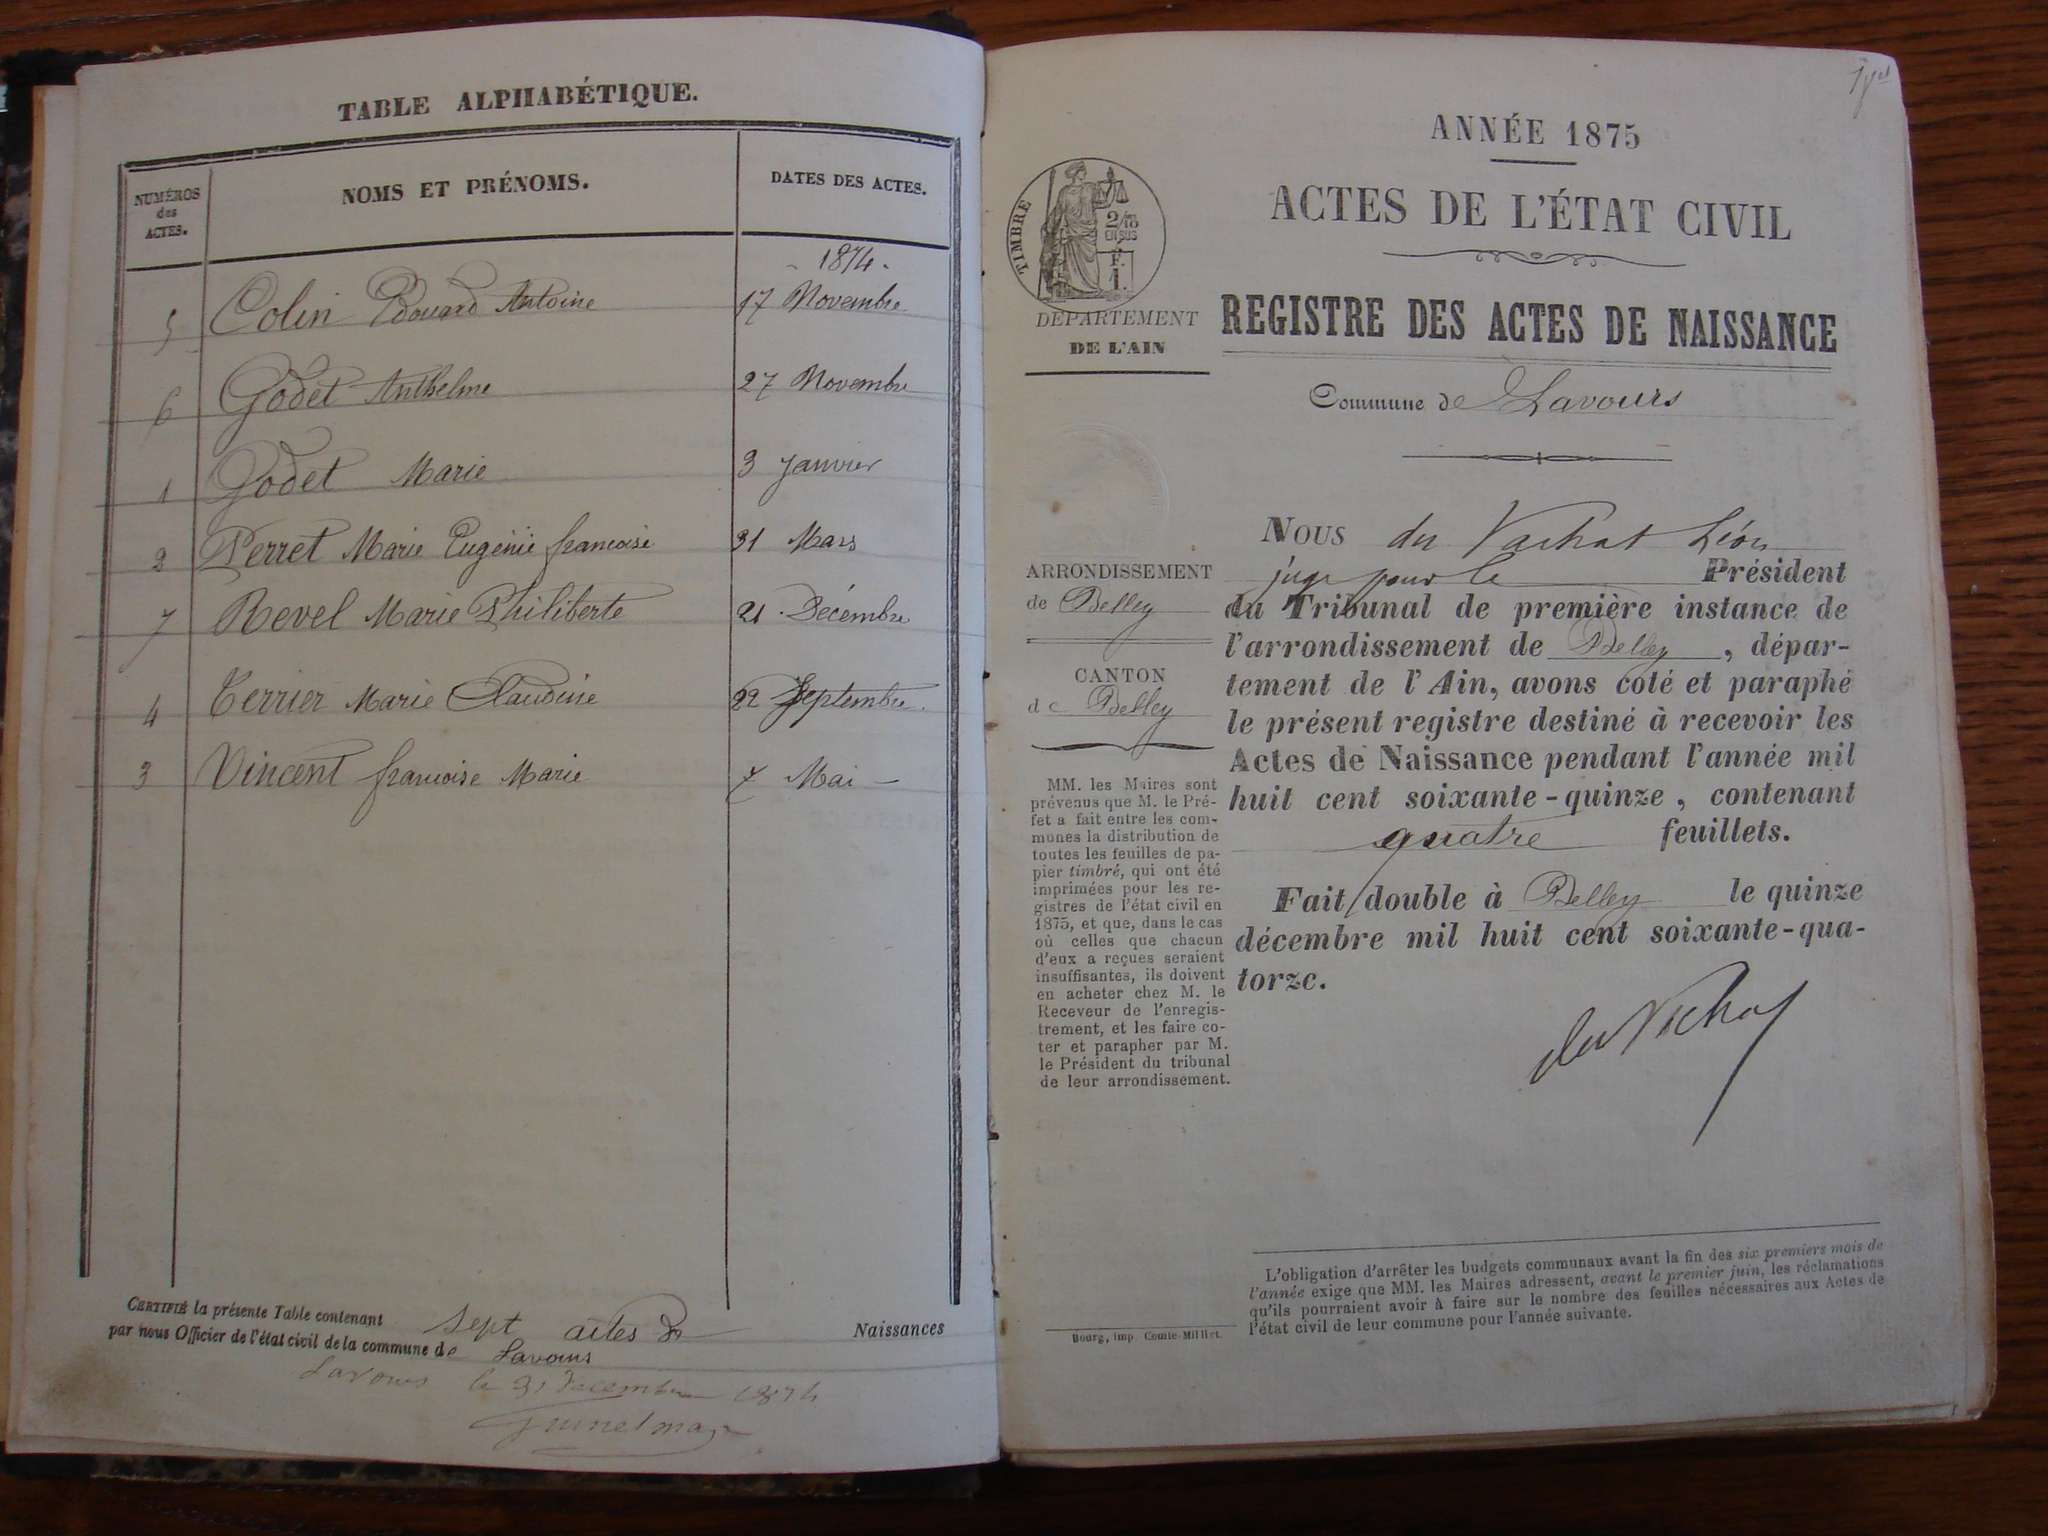 TABLE ALPHABÉTIQUE.
NUMÉROS
des
ACTES.
NOMS ET PRÉNOMS.
DATES DES ACTES.
- 1874 -
5 Colin Edouard Antoine 17 Novembre
6 Godet Anthelme 27 Novembre
1 Godet Marie 3 Janvier
2 Perret Marie Eugénie francoise 31 Mars
7 Revel Marie Philiberte 21 Décembre
4 Terrier Marie Claudine 22 Septembre
3 Vincent francoise Marie 7 Mai -
CERTIFIÉ la présente Table contenant sept actes de Naissances
par nous Officier de l'état civil de la commune de Lavours
Lavours le 31 Decembre 1874
ANNÉE 1875
ACTES DE L'ÉTAT CIVIL
REGISTRE DES ACTES DE NAISSANCE
Commune de Lavours
TIMBRE
2/10
EN SUS
F.
1.
DÉPARTEMENT
DE L'AIN
ARRONDISSEMENT
de Belley
CANTON
de Belley
MM. les Maires sont
prévenus que M. le Pré-
fet a fait entre les com-
munes la distribution de
toutes les feuilles de pa-
pier timbré, qui ont été
imprimées pour les re-
gistres de l'état civil en
1875, et que, dans le cas
où celles que chacun
d'eux a reçues seraient
insuffisantes, ils doivent
en acheter chez M. le
Receveur de l'enregis-
trement, et les faire co-
ter et parapher par M.
le Président du tribunal
de leur arrondissement.
NOUS du Vachat Léon
juge pour le Président
du Tribunal de première instance de
l'arrondissement de Belley, dépar-
tement de l'Ain, avons coté et paraphé
le présent registre destiné à recevoir les
Actes de Naissance pendant l'année mil
huit cent soixante-quinze, contenant
quatre feuillets.
Fait double à Belley le quinze
décembre mil huit cent soixante-qua-
torze.
du Vachat
Bourg, imp. Comte-Milliet.
L'obligation d'arrêter les budgets communaux avant la fin des six premiers mois de
l'année exige que MM. les Maires adressent, avant le premier juin, les réclamations
qu'ils pourraient avoir à faire sur le nombre des feuilles nécessaires aux Actes de
l'état civil de leur commune pour l'année suivante.